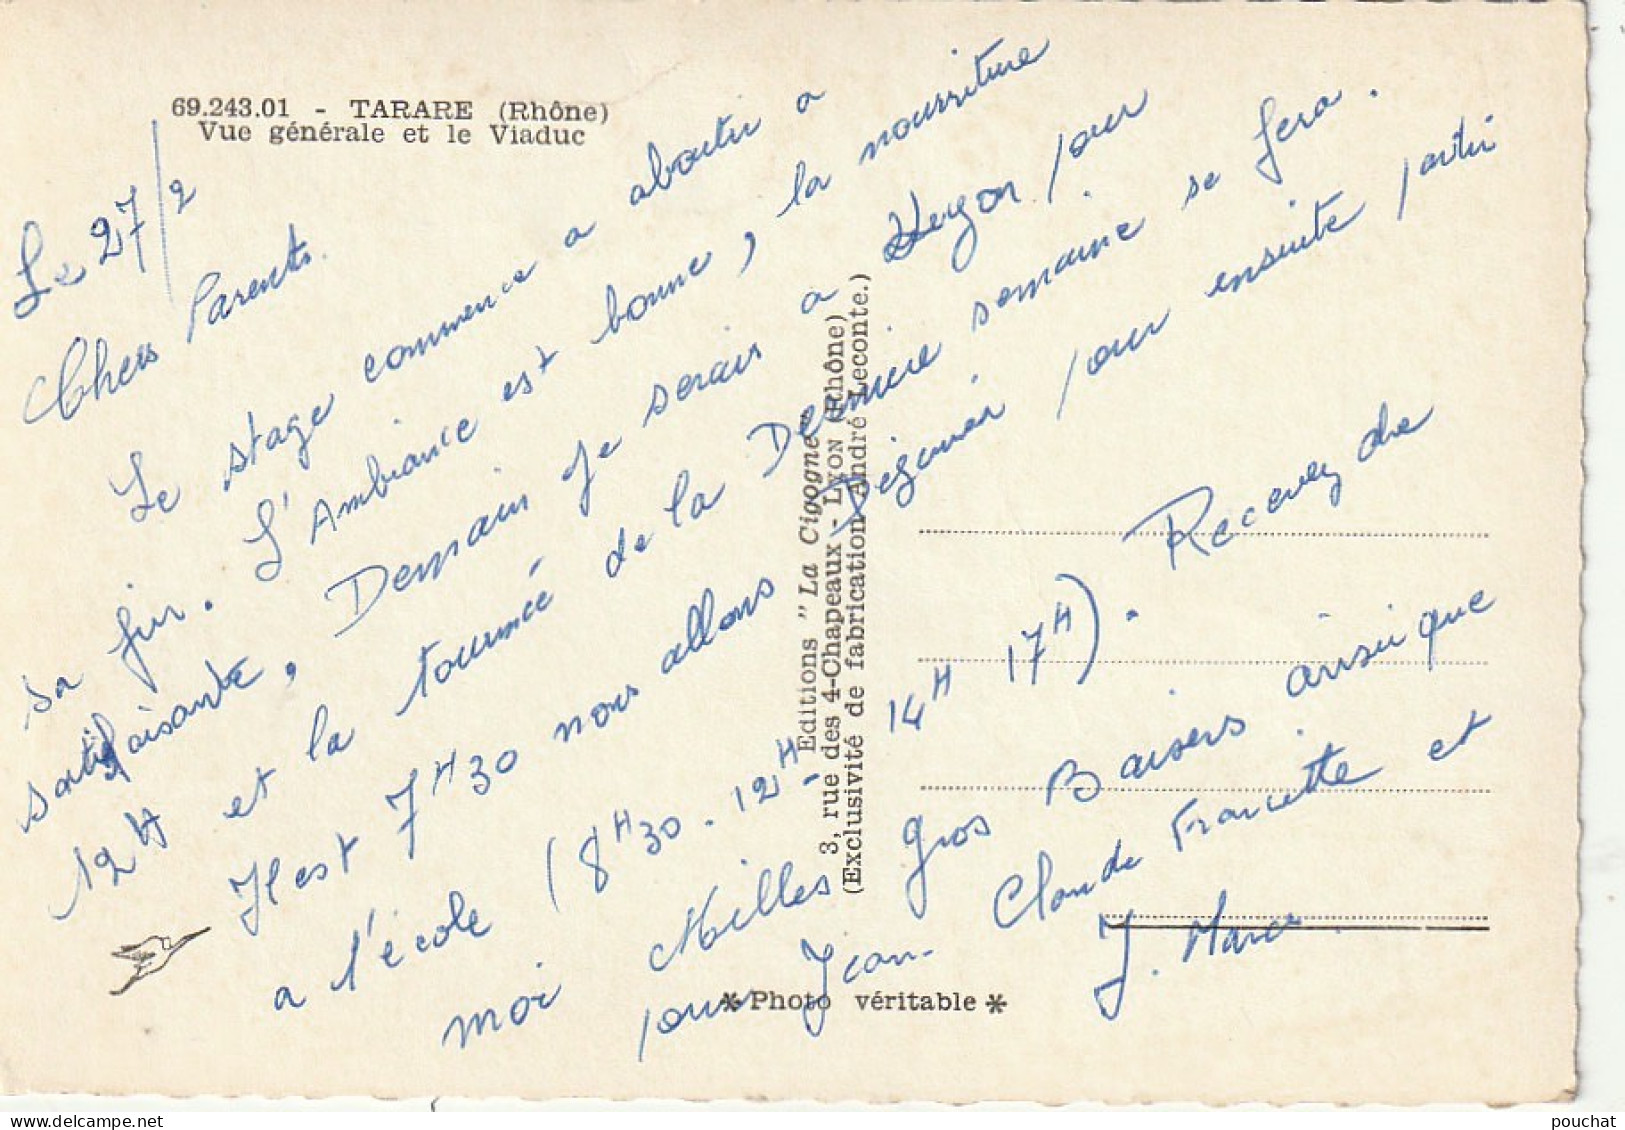 69.243.01 - TARARE (Rhône)
Vue générale et le Viaduc
Le 27/2
Chers Parents.
Le stage commence a aboutir a
sa fin. L'Ambiance est bonne, la nourriture
satisfaisante, Demain je serais a pour
12H et la tournée de la Dernière semaine se fera.
Il est 7H30 nous allons Déjeuner pour ensuite partir
a l'école (8H30-12H-14H 17H). Recevez de
moi Milles gros Baisers ainsi que
pour Jean-Claude Francette et
J. Marc.
Editions "La Cigogne"
3, rue des 4-Chapeaux - LYON (Rhône)
(Exclusivité de fabrication André Leconte.)
* Photo véritable *
delcampe.net
pouchat